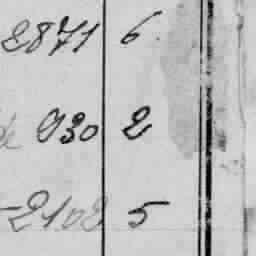 2871 6
de 930 2
2102 5